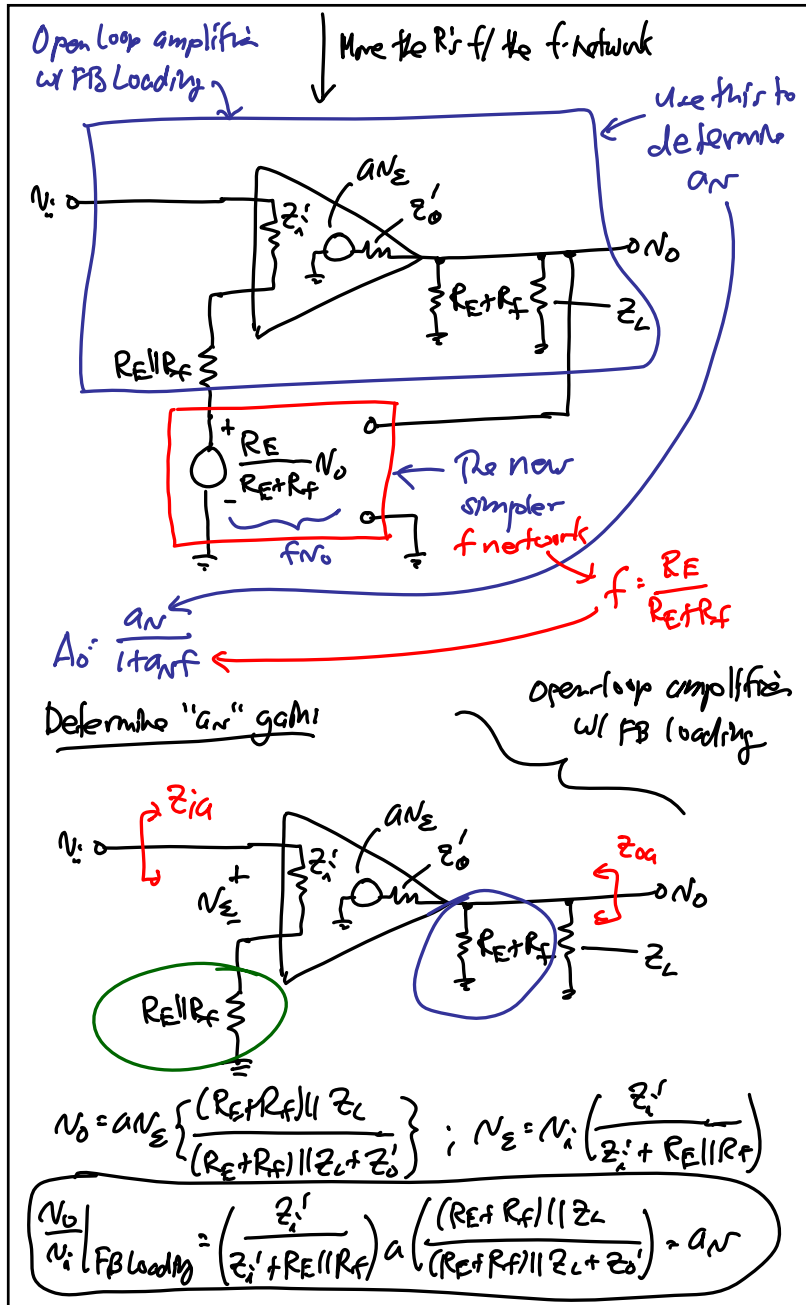 Open loop amplifier
w/ FB Loading
Move the R's f/ the f-network
use this to
determine
a_N
aN_ε
N_i
Z_i'
z_o'
N_o
R_E+R_f
Z_L
R_E||R_f
+
R_E/(R_E+R_f) N_o
-
fN_o
The new
simpler
f network
f = R_E/(R_E+R_f)
A_o = a_N/(1+a_Nf)
Determine "a_N" gain:
open-loop amplifier
w/ FB loading
Z_ia
aN_ε
N_i
+
N_ε
Z_i'
z_o'
Z_oa
N_o
R_E+R_f
Z_L
R_E||R_f
N_o = aN_ε {((R_E+R_f)||Z_L)/((R_E+R_f)||Z_L+Z_o')} ; N_ε = N_i (Z_i'/(Z_i'+R_E||R_f))
N_o/N_i |FB Loading = (Z_i'/(Z_i'+R_E||R_f)) a (((R_E+R_f)||Z_L)/((R_E+R_f)||Z_L+Z_o')) = a_N